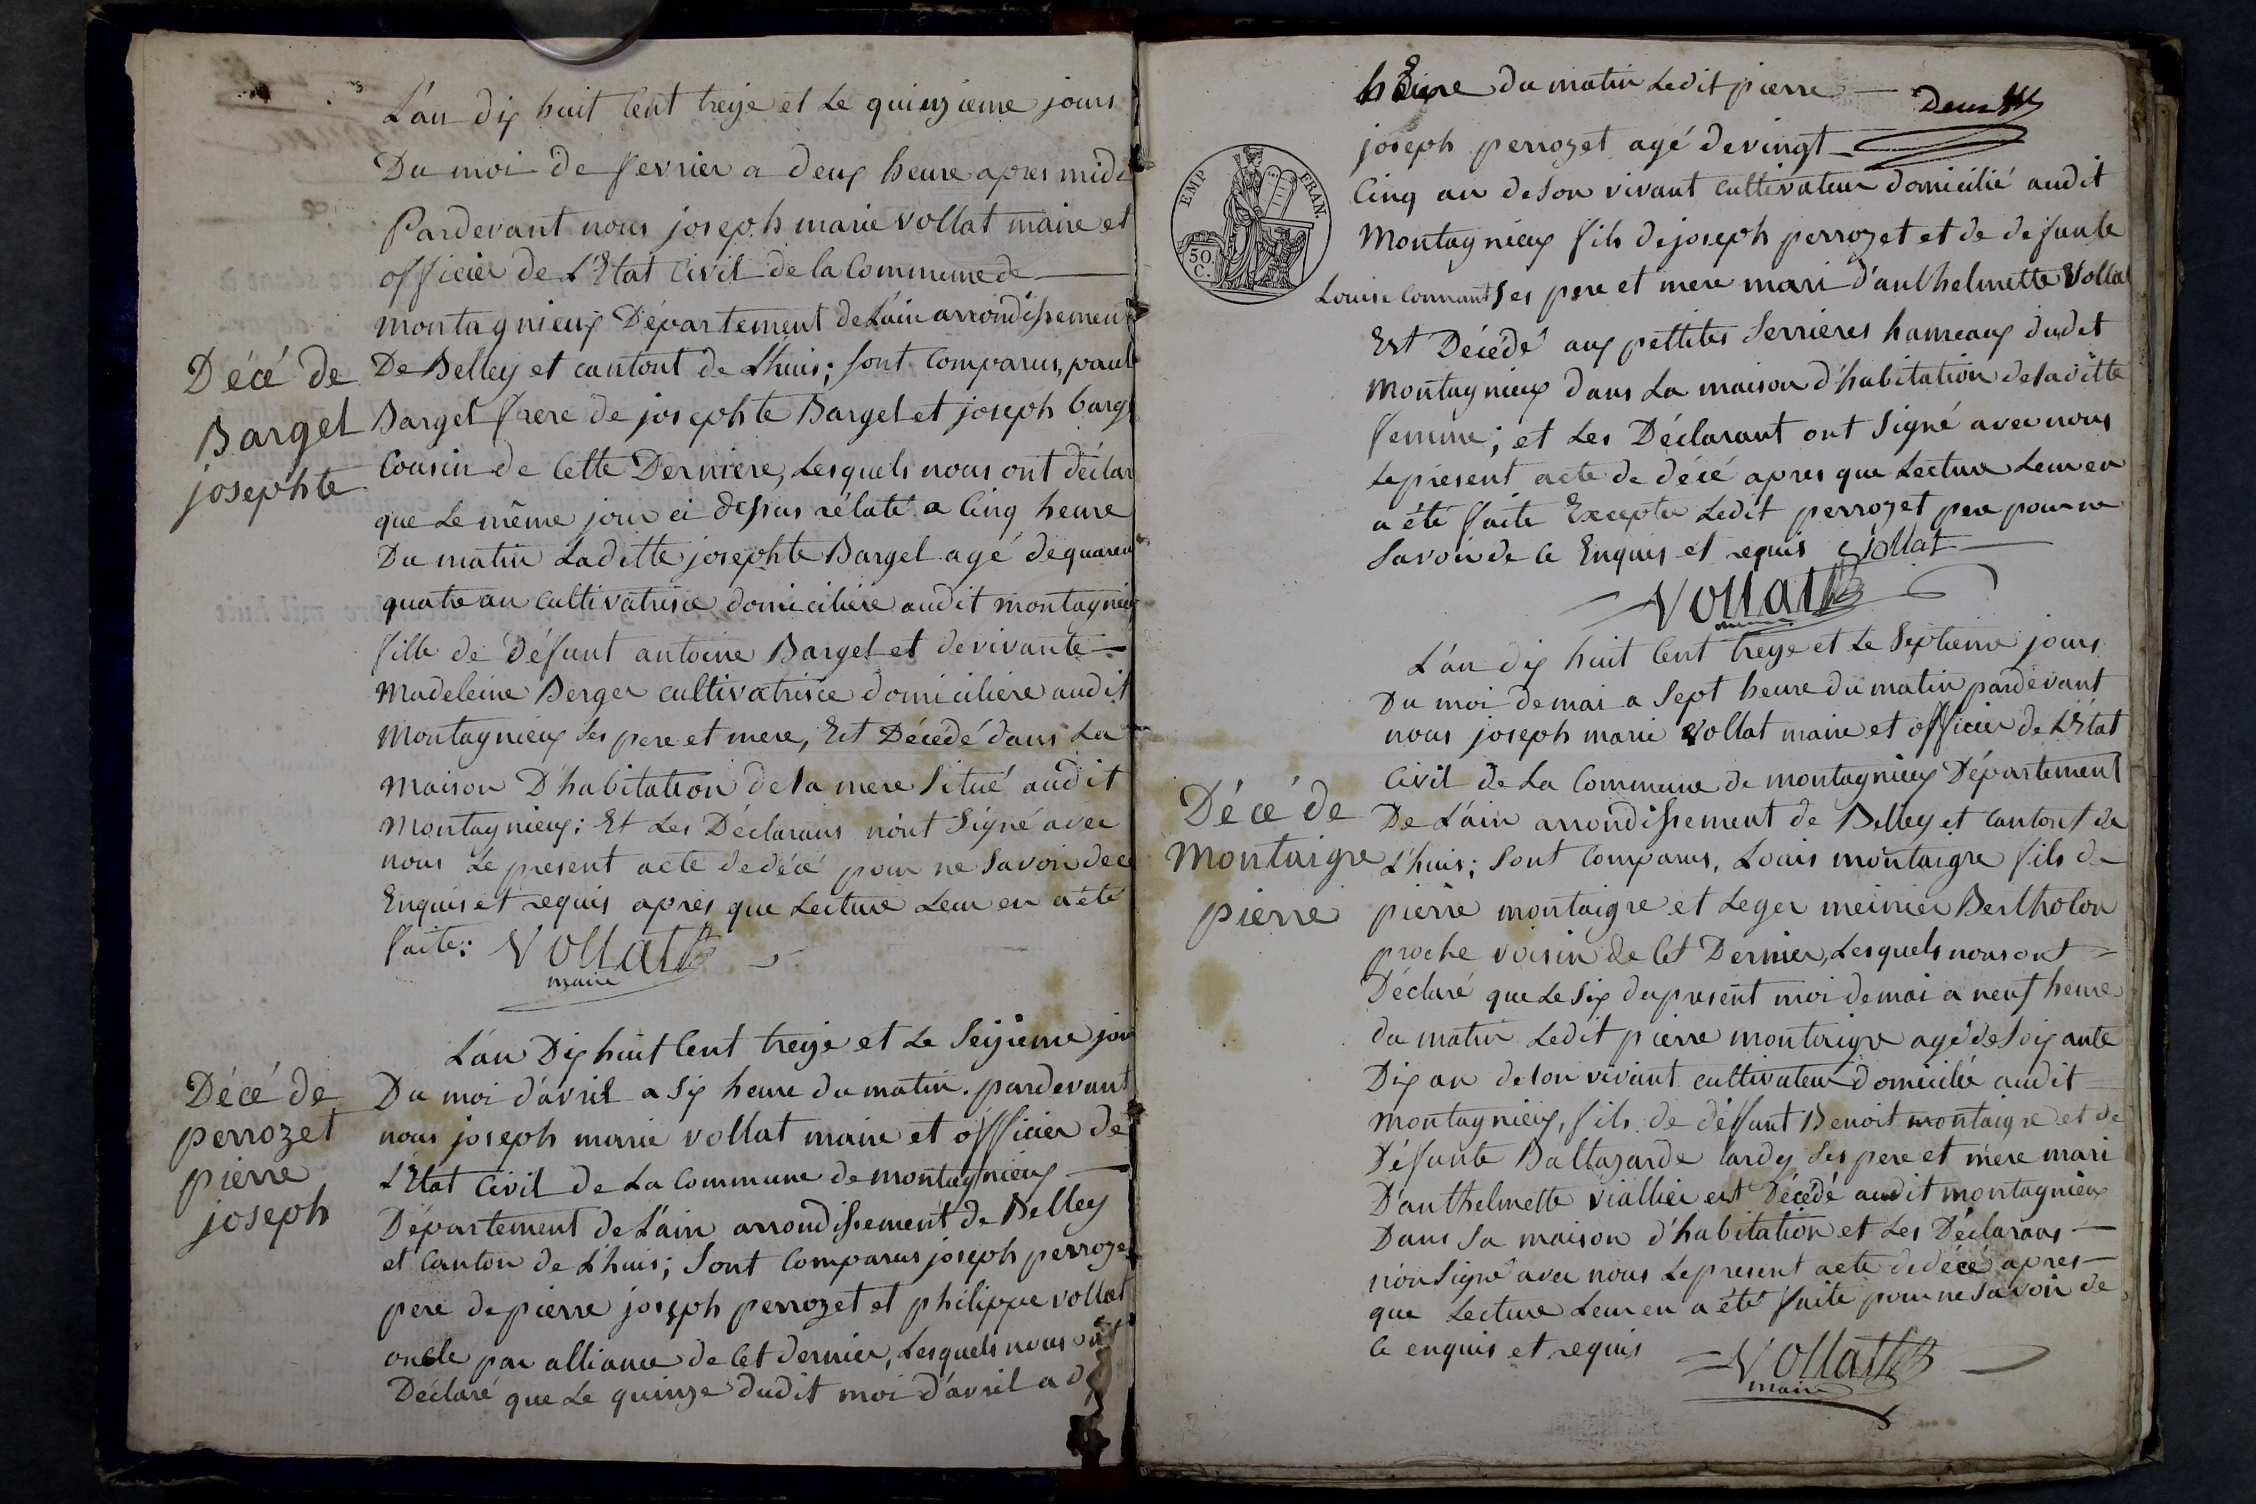 L'an dix huit Cent treize et Le quienzieme jours
Du moi de fevrier a deux heure apres midi
Pardevant nous joseph marie vollat maire et
officier de L'Etat Civil de la Commune de
montagnieux Département de L'ain arrondissement
De Belley et cantont de L'huis; sont Comparus, paul
Décé de
Bargel
josephte
Bargel frere de josephte Bargel et joseph barg
Cousin de Cette Derniere, Lesquels nous ont déclar
que Le même jour ci dessus rélaté a Cinq heure
Du matin Laditte josephte Bargel agé de quaren
quatre an cultivatrisce domiciliere audit montagnieux
fille de Défunt antoine Bargel et devivante
Madeleine Berger cultivatrisce domiciliere audit
Montagnieux ses pere et mere, Est Décédé dans La
maison D'habitation de sa mere situé audit
Montagnieux; Et Les Déclarans n'ont Signé avec
nous Le present acte de décé pour ne Savoir de ce
Enquis et requis apres que Lecture Leur en a été
faite: Vollat
maire
L'an Dix huit Cent treize et Le Seizieme jour
Décé de
perrozet
pierre
joseph
Du moi d'avril a six heure du matin. pardevant
nous joseph marie vollat maire et officier de
L'Etat Civil de La Commune de montagnieux
Département de L'ain arrondissement de Belley
et Canton de L'huis; Sont Comparus joseph perroze
pere de pierre joseph perrozet et philippe vollat
oncle par alliance de Cet dernier, Lesquels nous ont
Déclaré que Le quinze dudit moi d'avril a d
heure du matin Ledit pierre
Deux
EMP FRAN.
50 C.
joseph perrozet agé de vingt
Cinq an de son vivant cultivateur domicilié audit
Montagnieux fils de joseph perrozet et de defunte
Louise Connant ses pere et mere mari d'anthelmette Vollat
Est Décédé aux pettites Serrieres hameaux dudit
Montagnieux dans La maison d'habitation de saditte
femme; et Les Déclarant ont Signé avec nous
Le présent acte de décé apres que Lecture Leur en
a été faite Excepter Ledit perrozet pere pour ne
Savoir de Ce Enquis et requis Vollat
Vollat
maire
L'an dix huit Cent treize et Le Septieme jours
Du moi de mai a Sept heure du matin pardevant
nous joseph marie Vollat maire et officier de L'Etat
Civil de La Commune de montagnieux Département
Décé de
Montaigre
pierre
De L'ain arrondissement de Belley et Cantont de
L'huis; Sont Comparus, Louis montaigre fils de
pierre montaigre et Leger meinier Bertholon
proche voisin de Cet Dernier, Lesquels nous ont
Déclaré que Le six du présent moi de mai a neuf heure
du matin Ledit pierre montaigre agé de Soixante
Dix an de son vivant cultivateur domicilié audit
montagnieux, fils de déffunt Benoit montaigre et de
Défunte Baltazarde tardy ses pere et mère mari
D'anthelmette viallier est Décédé audit montagnieux
Dans Sa maison d'habitation et Les Déclarans
n'on Signé avec nous Le present acte de décé apres
que Lecture Leur en a été faite pour ne Savoir de
Ce enquis et requis Vollat
maire